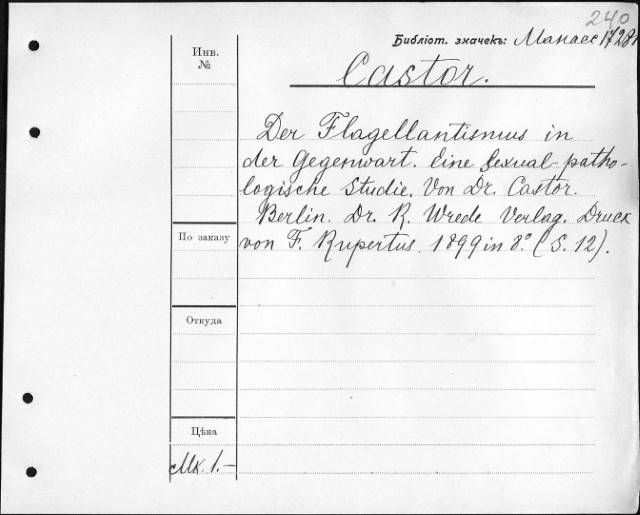 240
Библіот. значекъ: Манасс 17281
Инв.
№
Castor.
Der Flagellantismus in
der Gegenwart. Eine sexual-patho-
logische Studie. Von Dr. Castor.
Berlin. Dr. R. Wrede Verlag. Druck
von F. Rupertus. 1899 in 8.° (S. 12).
По заказу
Откуда
Цѣна
Мк. 1.-